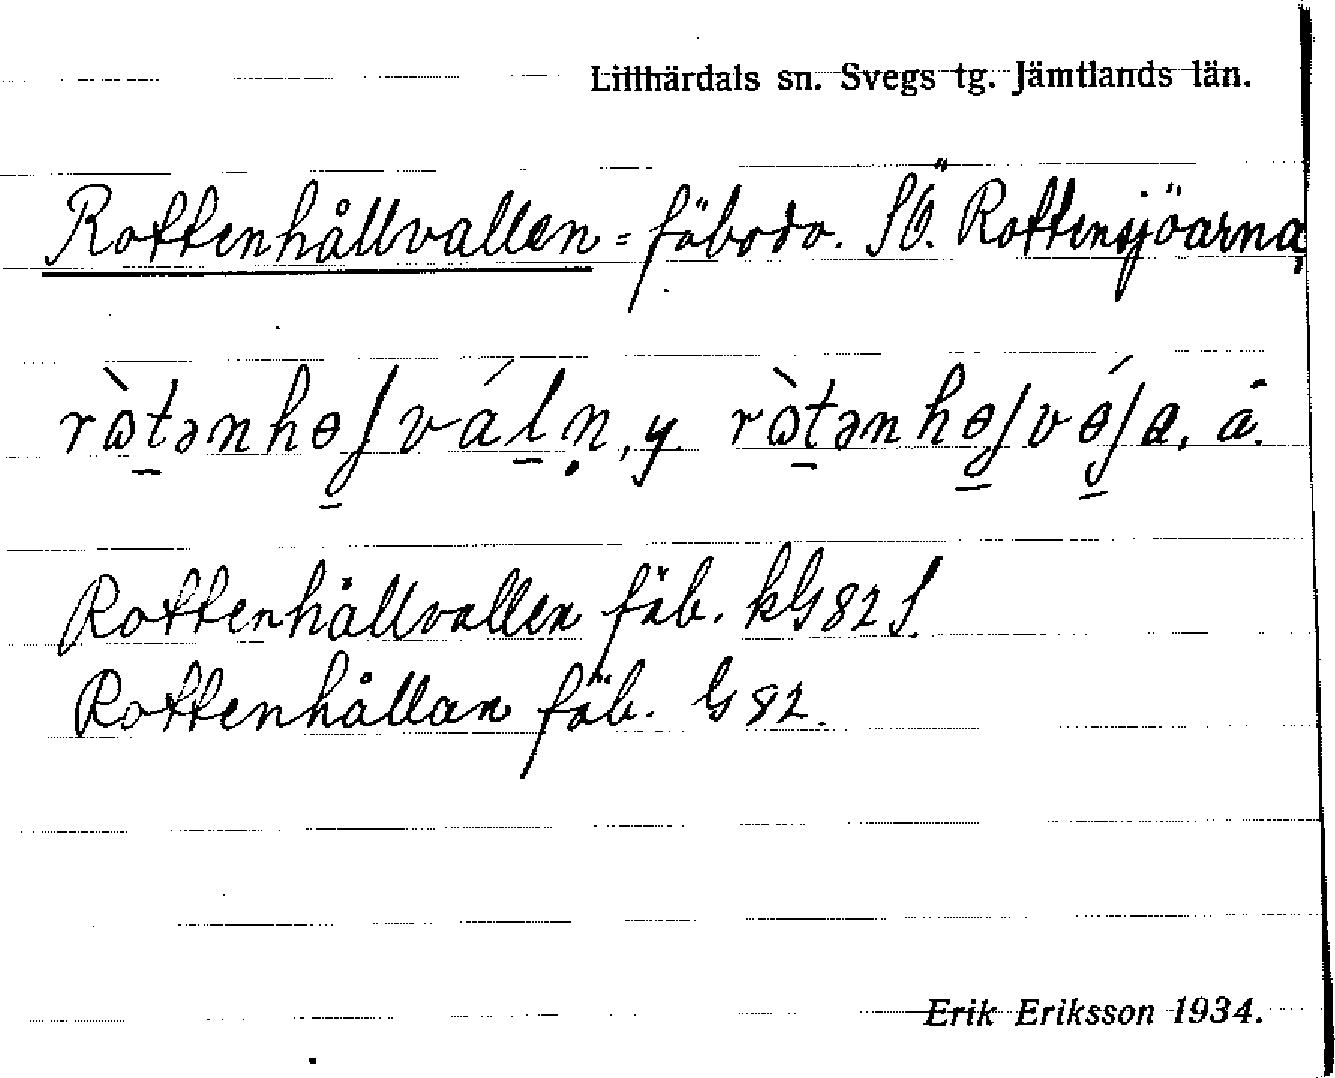 Lillhärdals sn. Svegs tg. Jämtlands län.
Rottenhållvallen = fäbodo. SÖ. Rottensjöarna,
rɷ̀t̠ənhɵʃ̠váḻṇ, y. rɷ̀t̠ənhɵʃ̠vɵ́ʃ̠a, å.
Rottenhållvallen fäb. kG82S.
Rottenhållan fäb. G82.
Erik Eriksson 1934.